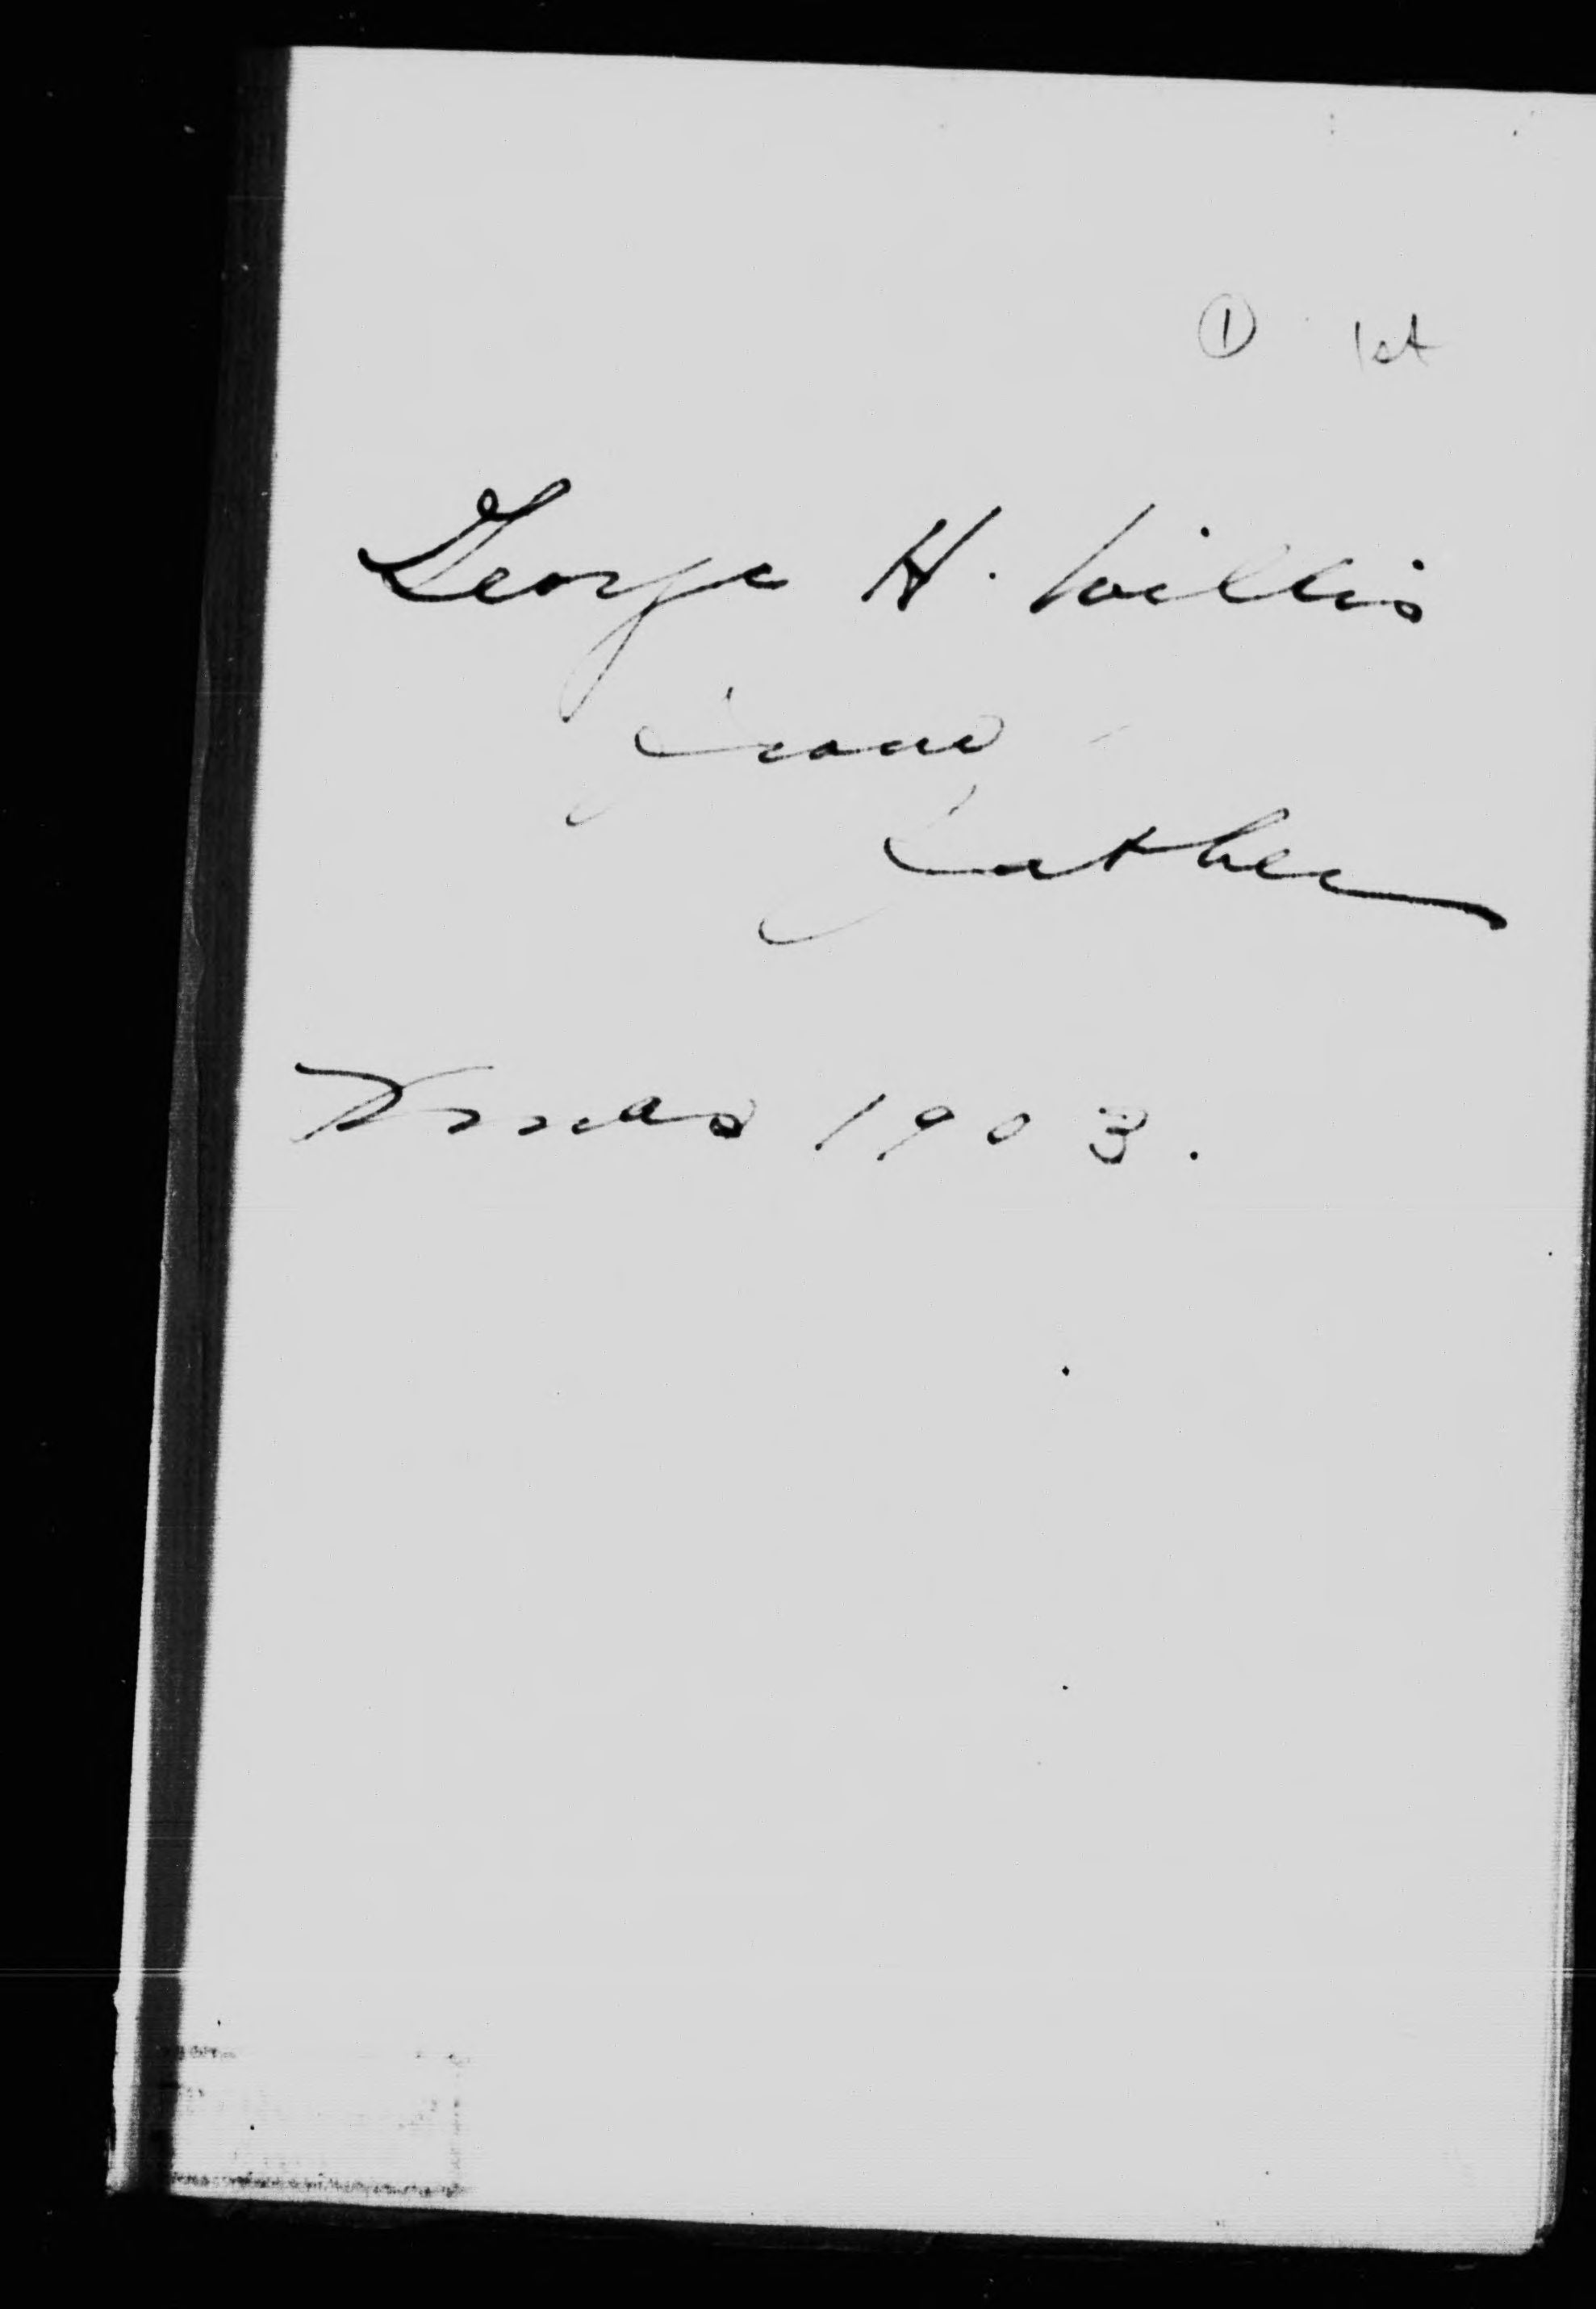 ① 1st
George H. Willis
from
Father
Xmas 1903.